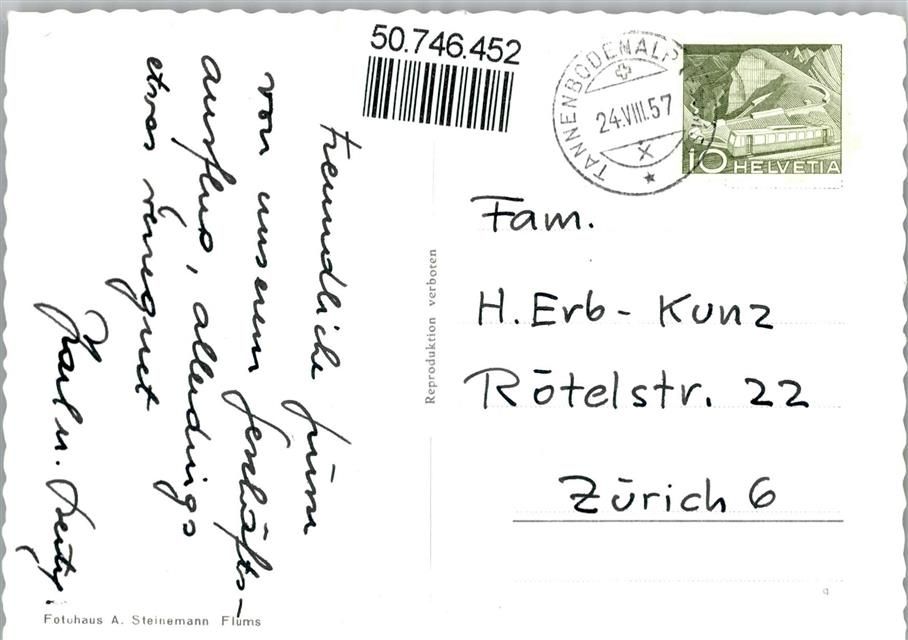 50.746.452
TANNENBODENALP
24.VIII.57
X
10 HELVETIA
Fam.
H. Erb - Kunz
Rötelstr. 22
Zürich 6
freundliche Grüsse
von unserem Geschäfts-
ausflug, allerdings
etwas verregnet
Karl u.
Reproduktion verboten
Fotohaus A. Steinemann Flums
9